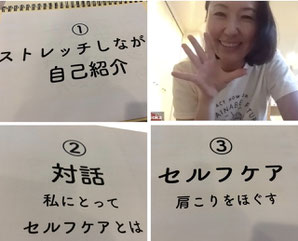 ①
ストレッチしなが
自己紹介
②
対話
私にとって
セルフケアとは
③
セルフケア
肩こりをほぐす